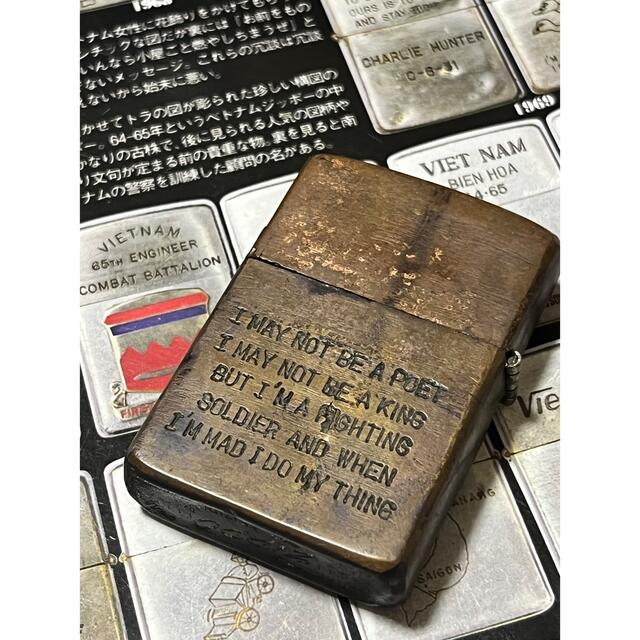 1968
ナム女性に花飾りをかけても
ンチックな図だが裏には「お前をもの
いんなら小屋ごと燃やしちまうぜ」と
ないメッセージ。これらの冗談は冗談
えないから始末に悪い。
かせてトラの図が彫られた珍しい構図の
ー。64-65年というベトナムジッポーの中
かなりの古株で、後に見られる人気の図柄や
り文句が定まる前の貴重な物。裏を見ると南
ナムの警察を訓練した顧問の名がある。
AND STAY
CHARLIE HUNTER
C-6-31
1969
VIET NAM
BIEN HOA
4-65
VIETNAM
65TH ENGINEER
COMBAT BATTALION
FIRST
I MAY NOT BE A POET
I MAY NOT BE A KING
BUT I'M A FIGHTING
SOLDIER AND WHEN
I'M MAD I DO MY THING
Vie
ANANG
SAIGON